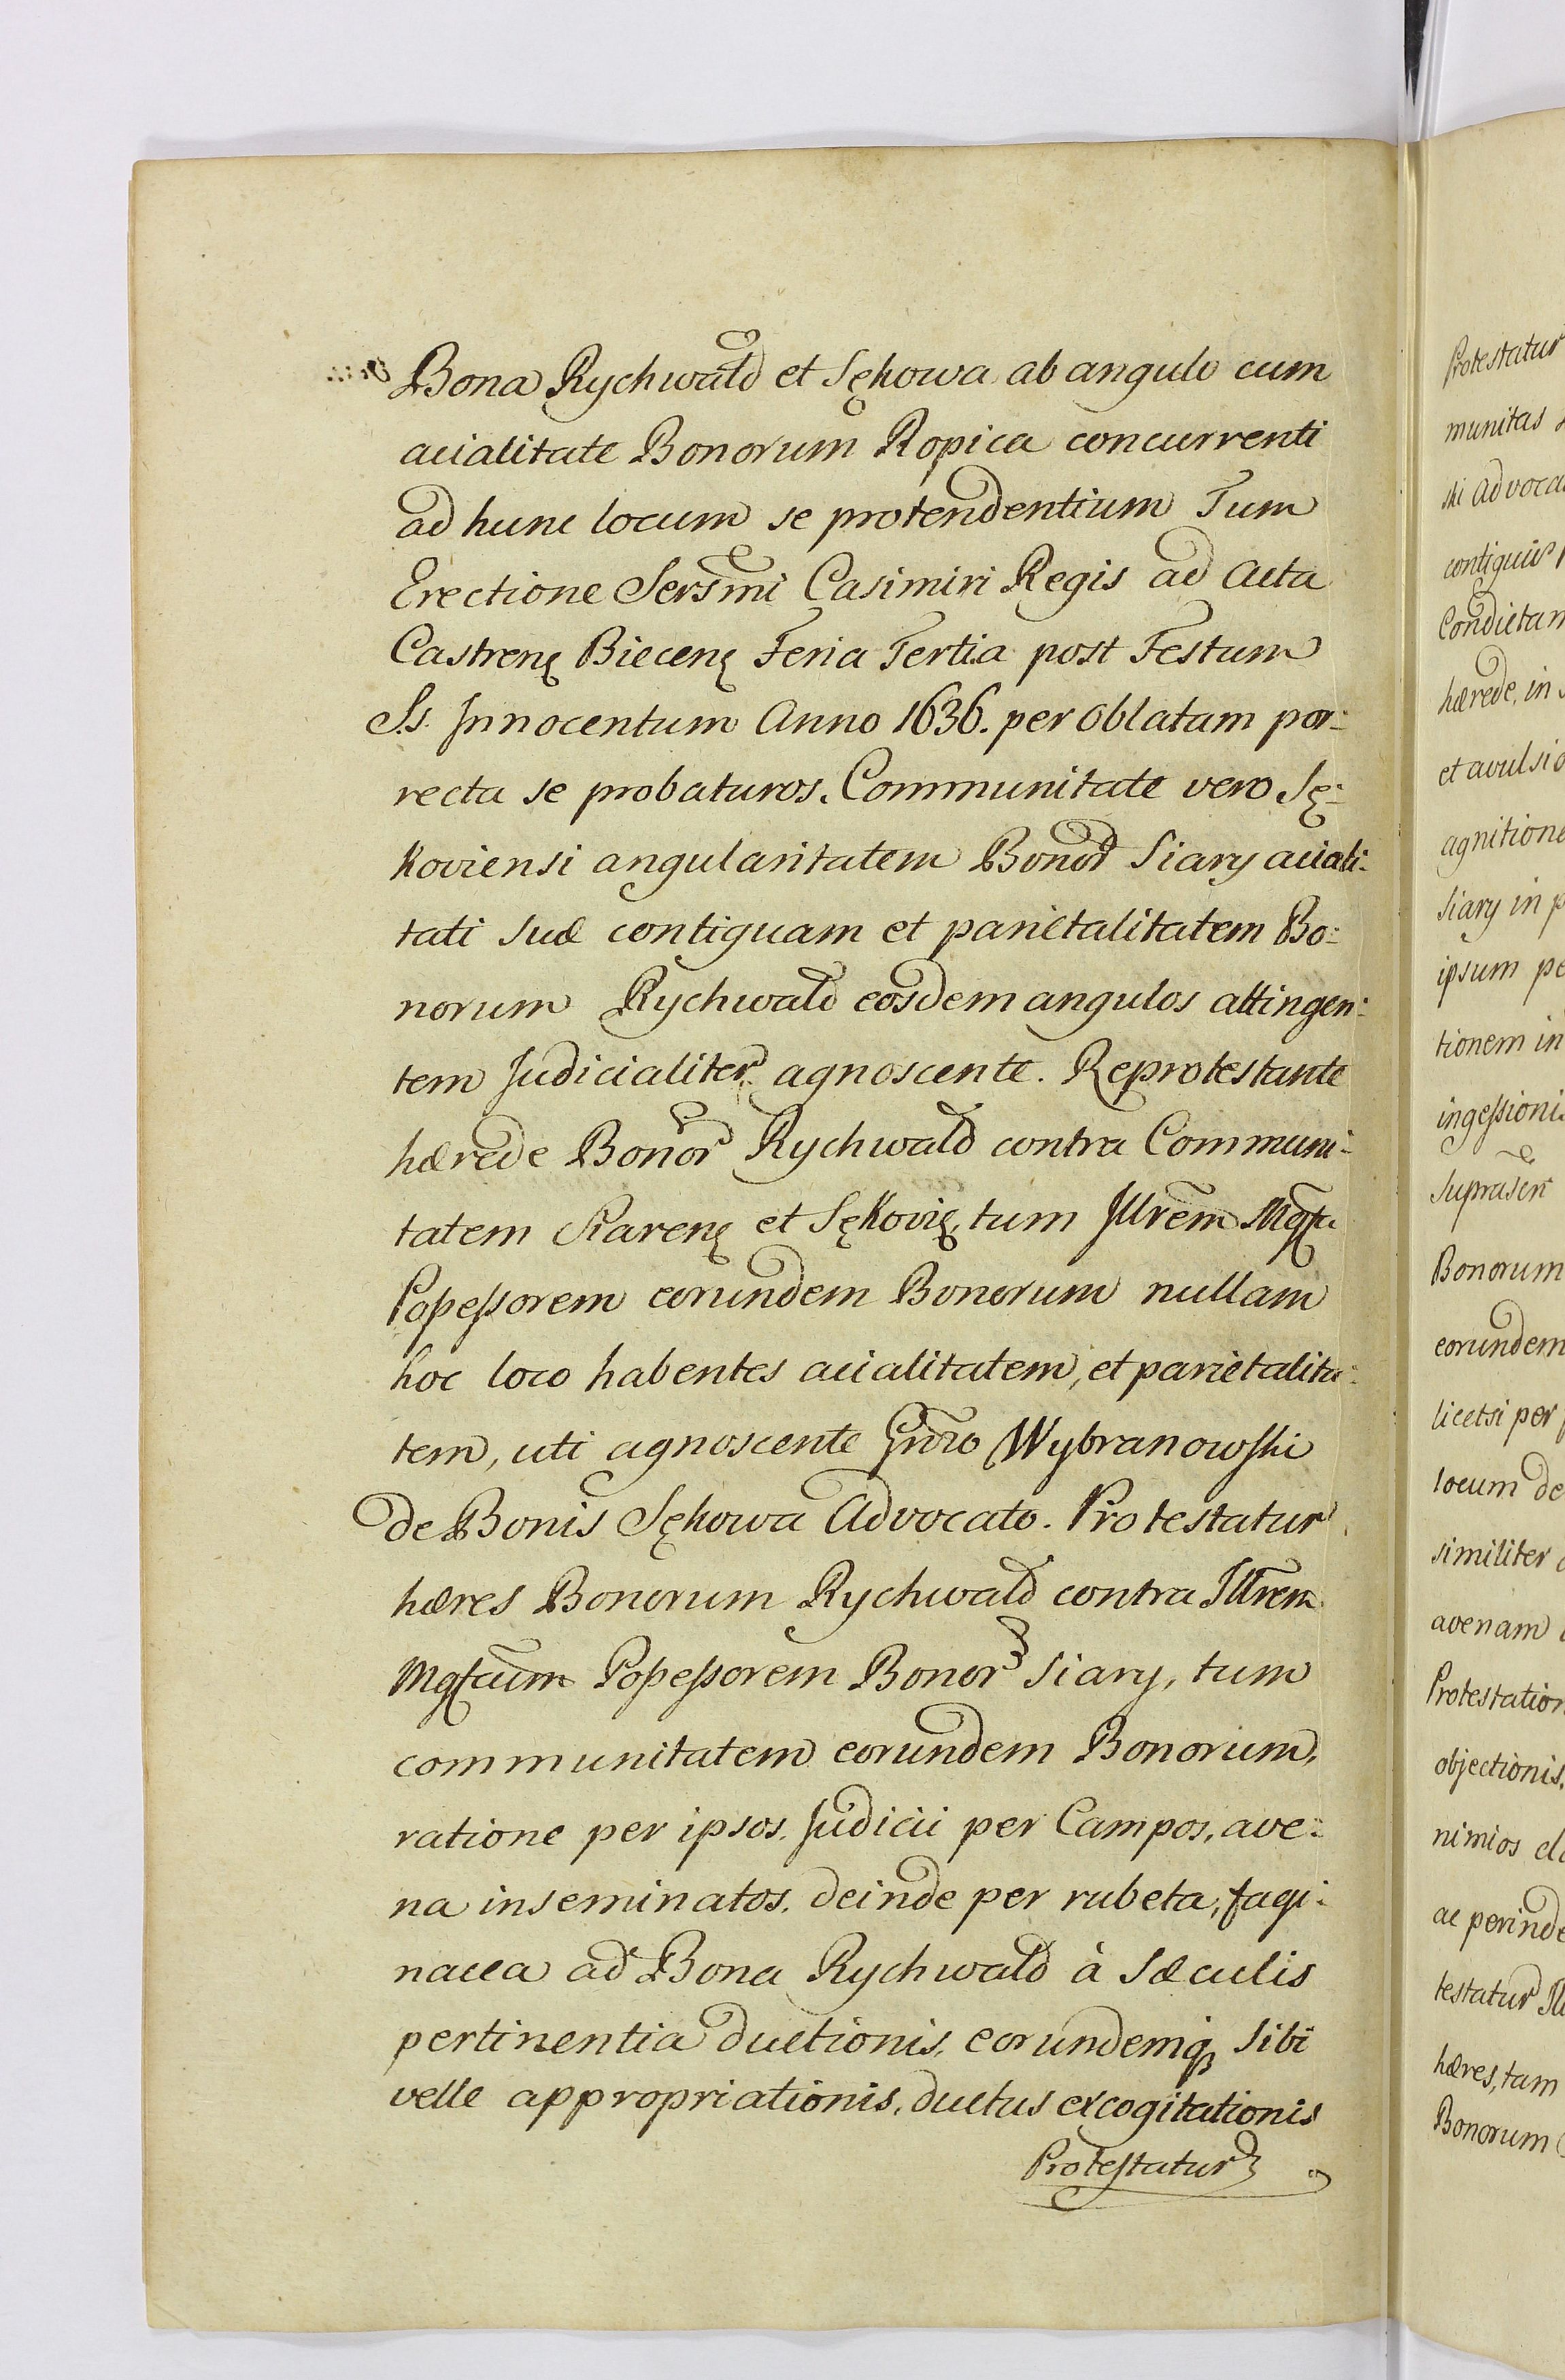 Bona Rychwald et Sękowa ab angulo cum
acialitate Bonorum Ropica concurrenti
ad hunc locum se protendentium Tum
Erectione Sersmi Casimiri Regis ad Acta
Castrenę Biecenę Feria Tertia post Festum
S.s. Innocentum Anno 1636. per Oblatam por:
recta se probaturos. Communitate vero Sę:
koviensi angularitatem Bonor Siary aciali:
tati suæ contiguam et parietalitatem Bo:
norum Rychwald eosdem angulos attingen:
tem Judicialiter agnoscente. Reprotestante
hærede Bonor Rychwald contra Communi:
tatem Siarenę et Sękovię, tum Illrem Mgfcu
Possessorem eorundem Bonorum nullam
hoc loco habentes acialitatem, et parietalita:
tem, uti agnoscente Gnroso Wybranowski
de Bonis Sękowa Advocato. Protestatur
hæres Bonorum Rychwald contra Illrem
Mgfcum Possessorem Bonor Siary, tum
communitatem eorundem Bonorum,
ratione per ipsos Judicii per Campos, ave:
na inseminatos, deinde per rubeta, fagi:
nacea ad Bona Rychwald à Sæculis
pertinentia ductionis, eorundemq sibi
velle appropriationis, ductus excogitationis
Protestatur
Protestatur
munitas
ski Advoca
contiguis
Condictam
hærede, in
et avulsio
agnitione
Siary in p
ipsum pe
tionem in
ingessioni
Suprascr
Bonorum
eorundem
licetsi per
locum de
similiter
avenam
Protestation
objectionis,
nimios
ac perinde
testatur Ill
hæres, tam
Bonorum